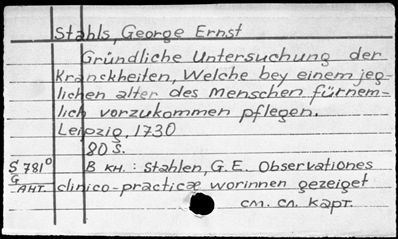 Stahls, George Ernst
Gründliche Untersuchung der
Kranckheiten, Welche bey einem jeg-
lichen alter des Menschen fürnem-
lich vorzukommen pflegen.
Leipzig, 1730
80 S.
S 781⁰ В кн.: Stahlen, G. E. Observationes
G
Ант. clinico-practicæ worinnen gezeiget
см. сл. карт.